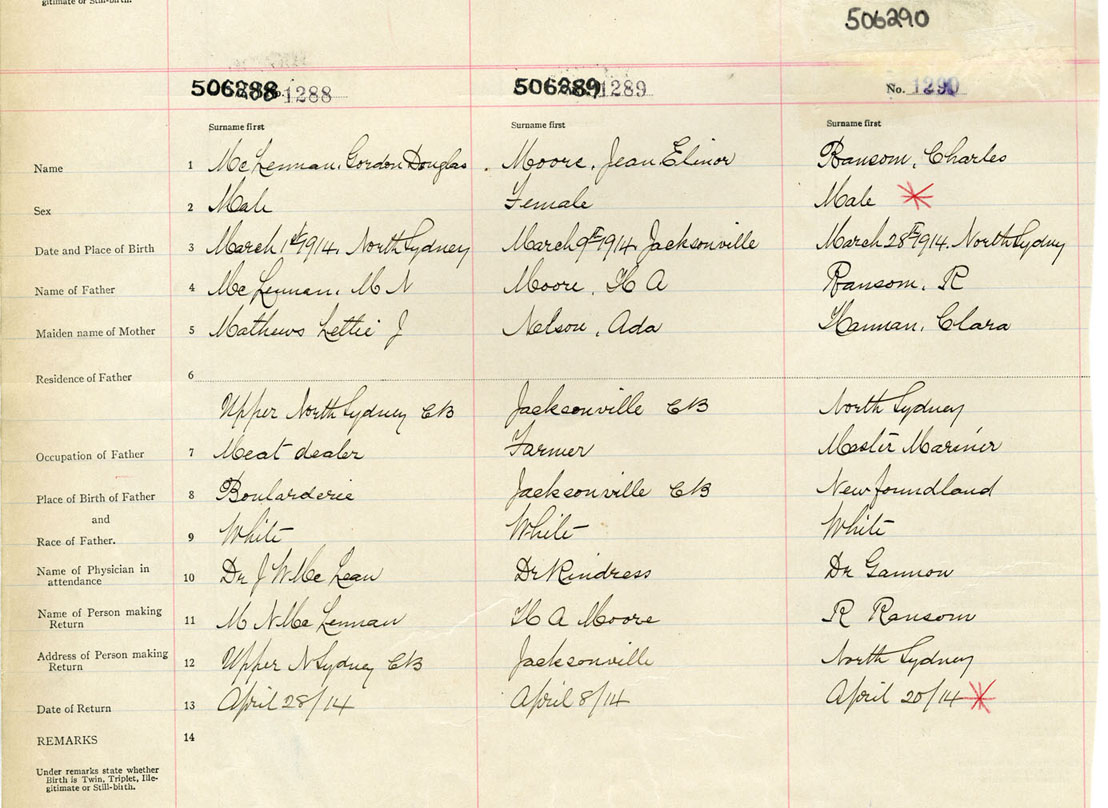 gitimate or Still-birth.
506290
506288 1288 506289 1289 No. 1290
Surname first Surname first Surname first
Name 1 McLennan, Gordon Douglas Moore, Jean Elinor Ransom, Charles
Sex 2 Male Female Male
Date and Place of Birth 3 March 1st 1914, North Sydney March 9th 1914 Jacksonville March 28th 1914. North Sydney
Name of Father 4 McLennan, M N Moore, H A Ransom, R
Maiden name of Mother 5 Mathews Lettie J Nelson, Ada Hannan, Clara
Residence of Father 6
Upper North Sydney CB Jacksonville CB North Sydney
Occupation of Father 7 Meat dealer Farmer Master Mariner
Place of Birth of Father 8 Boularderie Jacksonville CB Newfoundland
and
Race of Father. 9 White White White
Name of Physician in attendance 10 Dr J W McLean Dr Kindress Dr Gannon
Name of Person making Return 11 M N McLennan H A Moore R Ransom
Address of Person making Return 12 Upper N Sydney CB Jacksonville North Sydney
Date of Return 13 April 28/14 April 8/14 April 20/14
REMARKS 14
Under remarks state whether
Birth is Twin, Triplet, Ille-
gitimate or Still-birth.